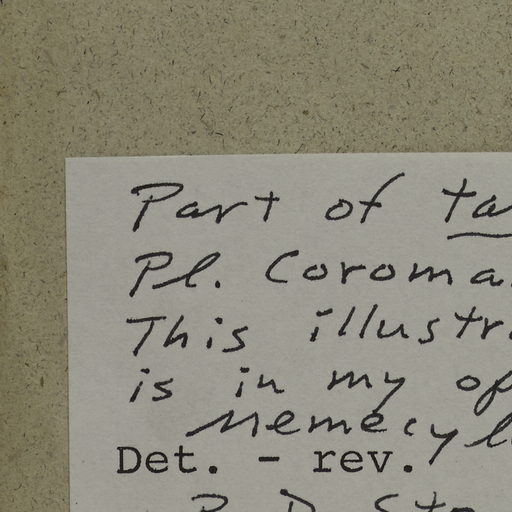 Part of ta
Pl. Coroma
This illustr
is in my op
Memecyl
Det. - rev.